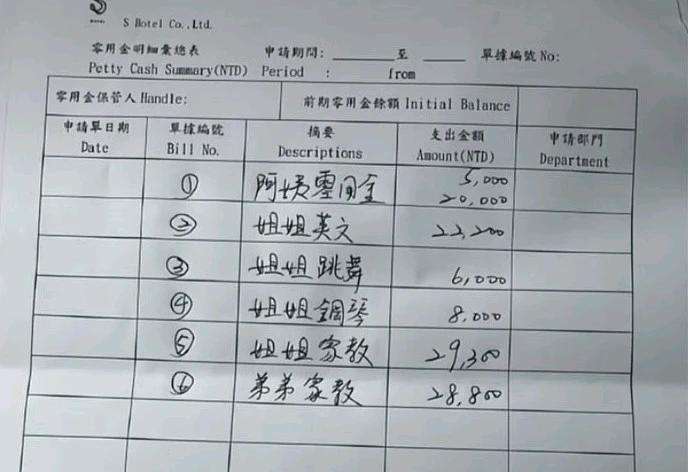 S
S Hotel Co., Ltd.
零用金明細彙總表 申請期間: ______ 至 ______ 單據編號 No:
Petty Cash Summary(NTD) Period : from
零用金保管人 Handle: 前期零用金餘額 Initial Balance
申請單日期 單據編號 摘要 支出金額 申請部門
Date Bill No. Descriptions Amount(NTD) Department
5,000
① 阿姨零用金 20,000
② 姐姐英文 22,200
③ 姐姐跳舞 6,000
④ 姐姐鋼琴 8,000
⑤ 姐姐家教 29,300
⑥ 弟弟家教 28,800